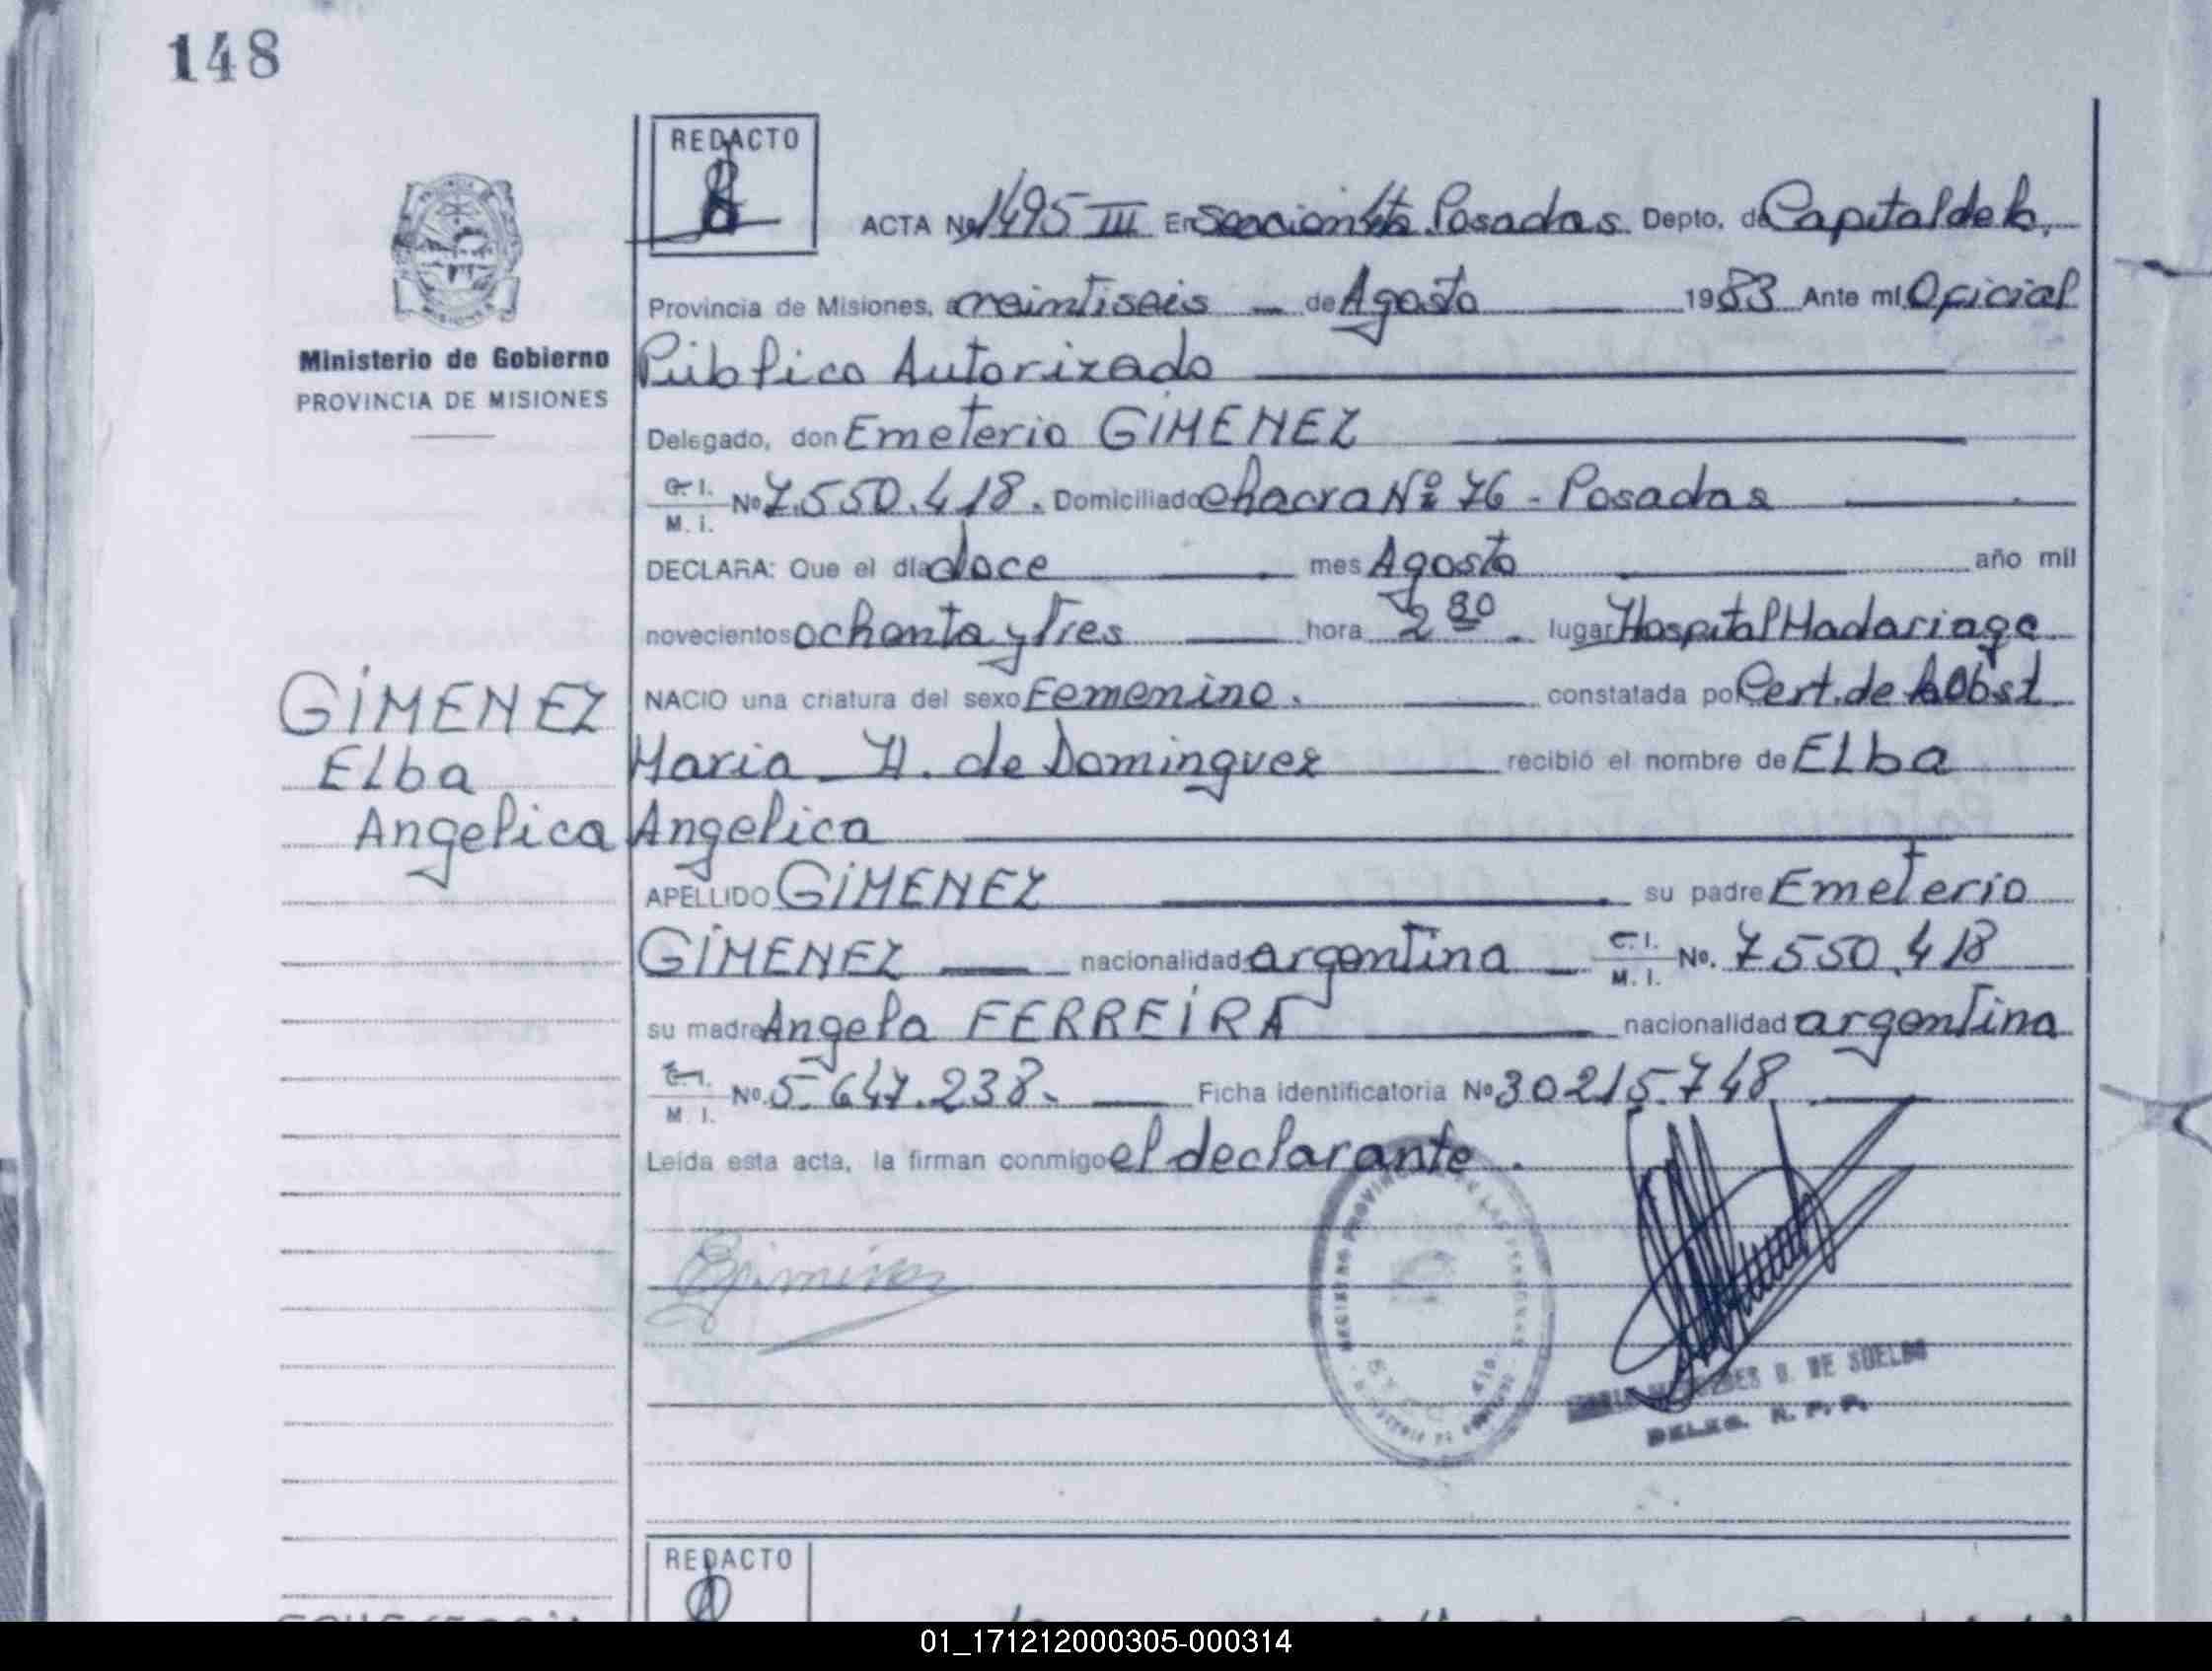 148
REDACTO
ACTA Nº 1495 III En Sección 4ta Posadas Depto. de Capital de la
Provincia de Misiones, a veintiseis de Agosto 1983 Ante mí Oficial
Ministerio de Gobierno
PROVINCIA DE MISIONES
Público Autorizado
Delegado, don Emeterio GIMENEZ
C. I. M. I. Nº 7.550.418. Domiciliado chacra Nº 76 - Posadas
DECLARA: Que el día doce mes Agosto año mil
novecientos ochenta y Tres hora 2 30. lugar Hospital Madariaga
GIMENEZ
Elba
Angelica
NACIO una criatura del sexo Femenino. constatada por Cert. de la Obst.
Maria H. de Dominguez recibió el nombre de Elba
Angelica
APELLIDO GIMENEZ su padre Emeterio
GIMENEZ nacionalidad argentina C. I. M. I. Nº. 7.550.418
su madre Angela FERREIRA nacionalidad argentina
C. I. M. I. Nº 5.647.238. Ficha identificatoria Nº 30215.748
Leída esta acta, la firman conmigo el declarante.
REGISTRO PROVINCIAL DE LAS PERSONAS
B. DE SUELDO
DELEG. R. P. P.
REDACTO
01_171212000305-000314